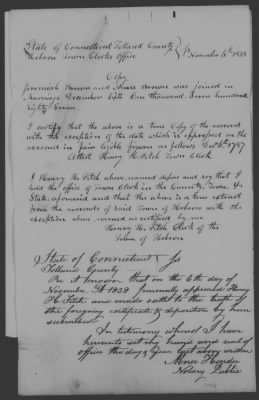 State of Connecticut Tolland County
Hebron Town Clerks Office } Ss November 6th 1838
Copy
Jeremiah Brown and Brown was joined in
Marriage December Sixth One thousand Seven hundred
Eighty Seven
I certify that the above is a true Copy of the record
with the exception of the date which is expressed on the
record in plain legible figures as follows Decr 6th 1787
Attest Henry H. Fitch Town Clerk
I Henry H. Fitch above named depose and say that I
hold the office of Town Clerk in the County, Town, &
State aforesaid and that the above is a true extract
from the records of said Town of Hebron with the
exception above named as certified by me
Henry H. Fitch Clerk of the
Town of Hebron
State of Connecticut } Ss
Tolland County
Be it known that on the 6th day of
November AD 1838 personally appeared Henry
H. Fitch and made oath to the truth of
the foregoing certificate & deposition by him
subscribed
In testimony whereof I have
hereunto set my hand and seal of
office the day & year last above written
Abner Hendee
Notary Public